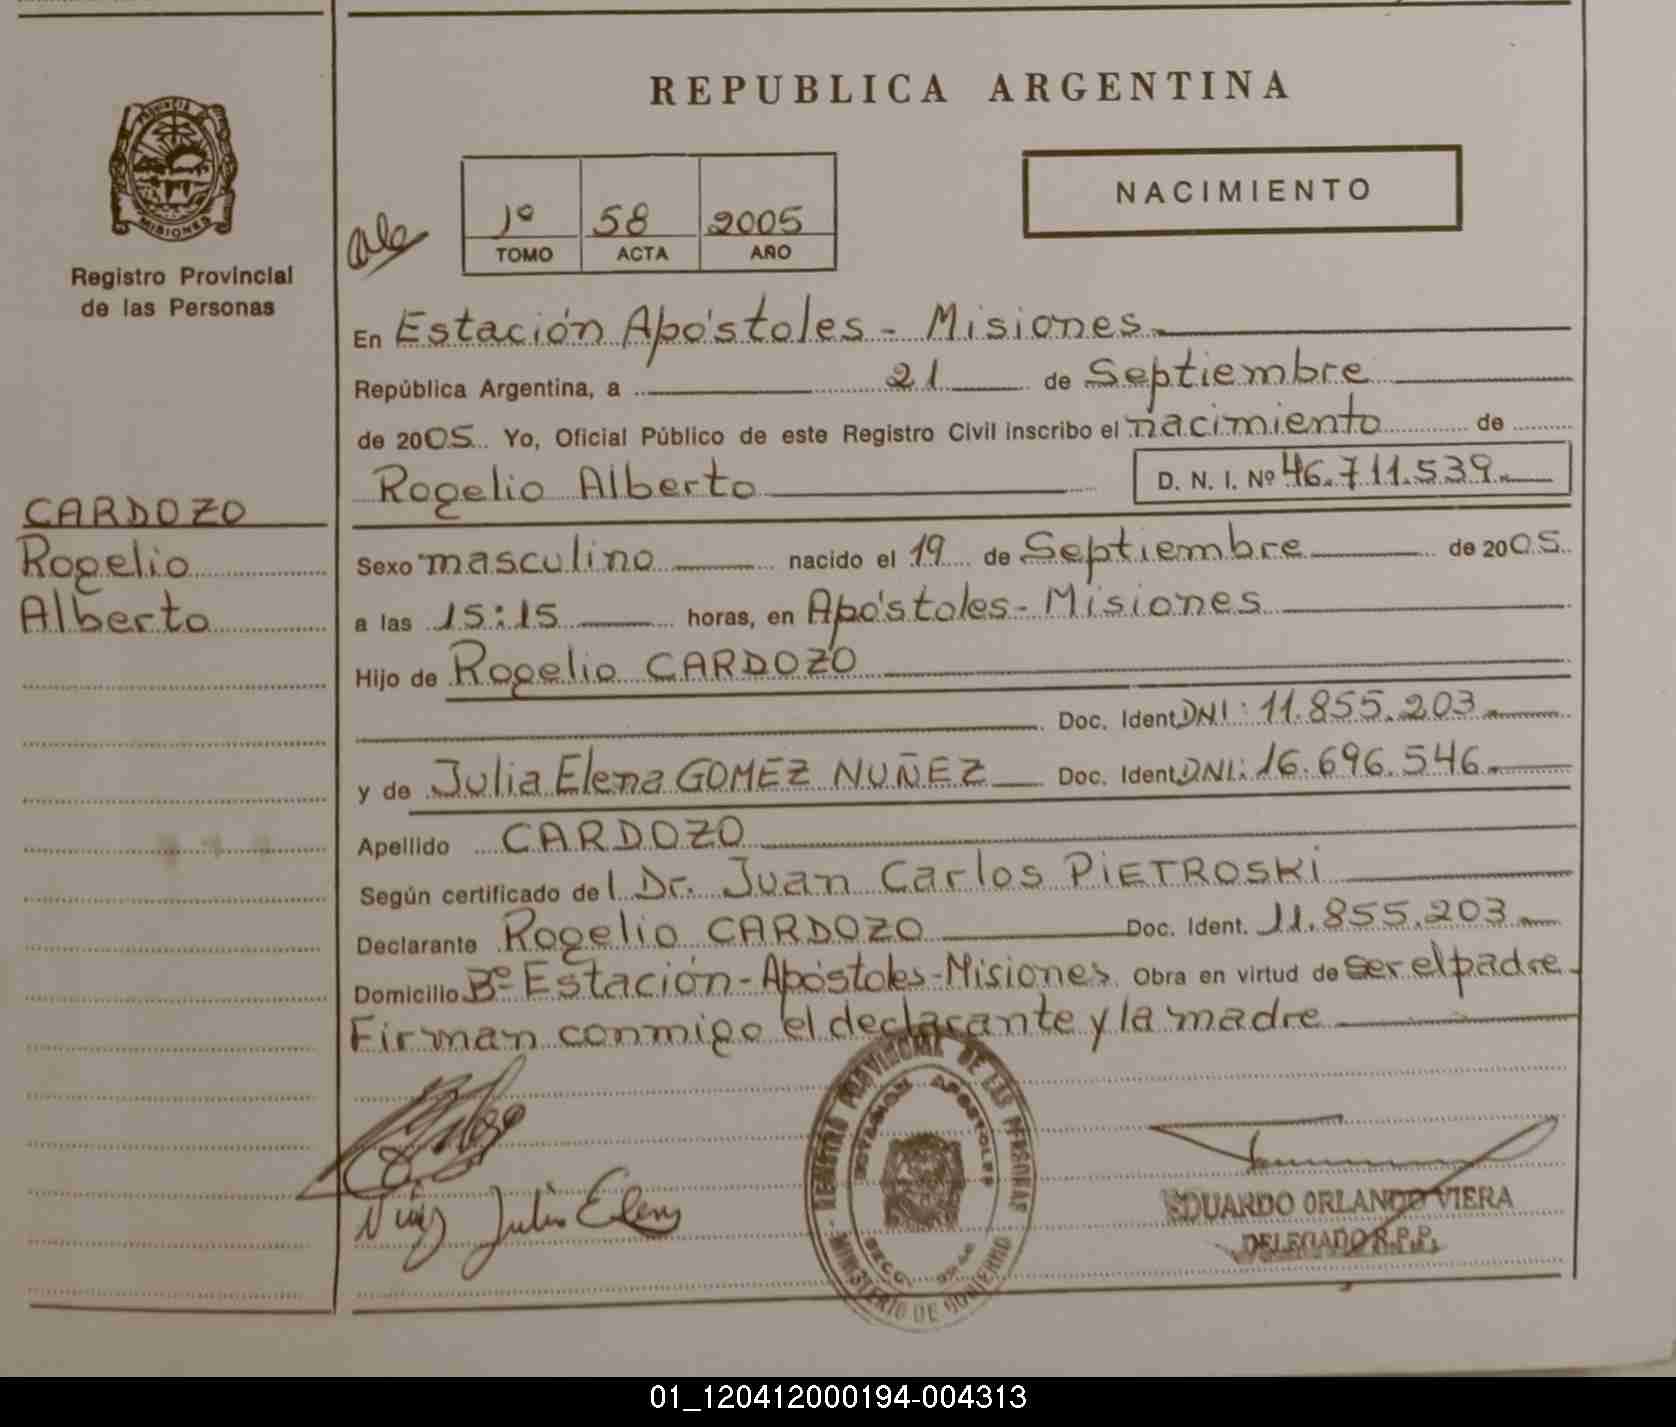 REPUBLICA ARGENTINA
PROVINCIA DE
MISIONES
Registro Provincial
de las Personas
1º 58 2005
TOMO ACTA AÑO
NACIMIENTO
En Estación Apóstoles - Misiones
República Argentina, a 21 de Septiembre
de 2005 Yo, Oficial Público de este Registro Civil inscribo el nacimiento de
Rogelio Alberto D. N. I. Nº 46.711.539.
CARDOZO
Rogelio
Alberto
Sexo masculino nacido el 19 de Septiembre de 2005.
a las 15:15 horas, en Apóstoles - Misiones
Hijo de Rogelio CARDOZO
Doc. Ident. DNI: 11.855.203.
y de Julia Elena GOMEZ NUÑEZ Doc. Ident. DNI: 16.696.546.
Apellido CARDOZO
Según certificado del Dr. Juan Carlos PIETROSKI
Declarante Rogelio CARDOZO Doc. Ident. 11.855.203.
Domicilio Bº Estación - Apóstoles - Misiones. Obra en virtud de ser el padre.
Firman conmigo el declarante y la madre
Julia Elena
REGISTRO PROVINCIAL DE LAS PERSONAS
ESTACION APOSTOLES
MINISTERIO DE GOBIERNO
EDUARDO ORLANDO VIERA
DELEGADO R.P.P.
01_120412000194-004313